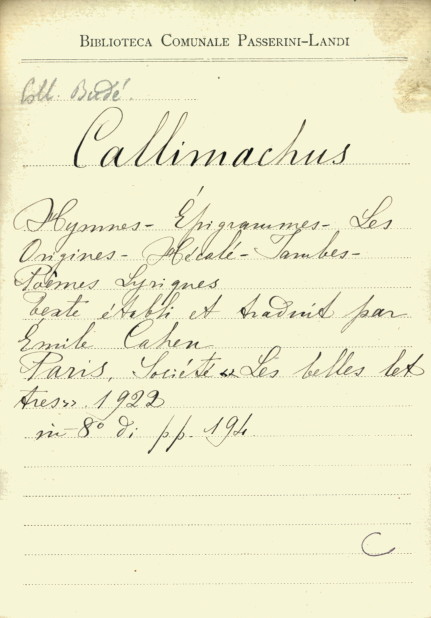 BIBLIOTECA COMUNALE PASSERINI-LANDI
Coll. Budé.
Callimachus
Hymnes - Épigrammes - Les
Origines - Hécalé - Iambes -
Poèmes Lyriques
texte établi et traduit par
Emile Cahen
Paris, Société « Les belles let
tres ». 1922
in-8° di pp. 194
C